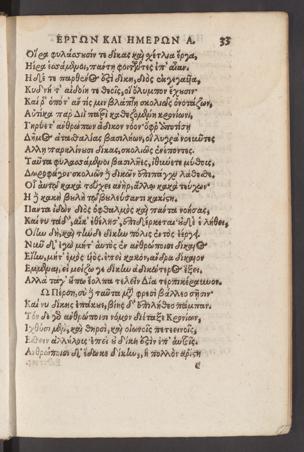 ΕΡΓΩΝ ΚΑΙ ΗΜΕΡΩΝ Α. 33
Οἵ ῥα φυλάσσουσίν τε δίκας καὶ σχέτλια ἔργα,
Ηέρα ἑσσάμενοι, πάντη φοιτῶντες ἐπ' αἶαν.
Η δέ τε παρθένος ἐστὶ δίκη, διὸς ἐκγεγαυῖα,
Κυδνή τ' αἰδοίη τε θεοῖς, οἳ ὄλυμπον ἔχουσιν
Καί ῥ' ὁπότ' ἄν τίς μιν βλάπτῃ σκολιῶς ὀνοτάζων,
Αὐτίκα παρ Διῒ πατρὶ καθεζομένη κρονίωνι,
Γηρύετ' ἀνθρώπων ἄδικον νόον· ὄφρ' ἀποτίσῃ
Δῆμος ἀτασθαλίας βασιλήων, οἳ λυγρὰ νοεῦντες
Αλλῃ παρκλίνωσι δίκας, σκολιῶς ἐνέποντες.
Ταῦτα φυλασσόμενοι βασιλῆες, ἰθύνετε μύθους,
Δωροφάγοι· σκολιῶν δὲ δικῶν ἐπιπάγχυ λάθεσθε.
Οἷ αὐτῷ κακὰ τεύχει ἀνὴρ, ἄλλῳ κακὰ τεύχων·
Η δὲ κακὴ βουλὴ τῷ βουλεύσαντι κακίστη.
Πάντα ἰδὼν διὸς ὀφθαλμὸς καὶ πάντα νοήσας,
Καί νυ τάδ', αἴκ' ἐθέλησ', ἐπιδέρκεται· οὐδέ ἑ λήθει,
Οἵην δὴ καὶ τήνδε δίκην πόλις ἐντὸς ἐέργει.
Νῦν δ' ἐγὼ μήτ' αὐτὸς ἐν ἀνθρώποισι δίκαιος
Εἴην, μήτ' ἐμὸς υἱός. ἐπεὶ κακὸν, ἄνδρα δίκαιον
Εμμεναι, εἰ μείζω γε δίκην ἀδικώτερος ἕξει.
Αλλὰ τάγ' οὔπω ἔολπα τελεῖν Δία τερπικέραυνον.
Ω Πέρση, σὺ δὲ ταῦτα μετὰ φρεσὶ βάλλεο σῇσιν
Καί νυ δίκης ἐπάκουε, βίης δ' ἐπιλήθεο πάμπαν.
Τόνδε γὰρ ἀνθρώποισι νόμον διέταξε Κρονίων,
Ιχθύσι μὲν, καὶ θηρσὶ, καὶ οἰωνοῖς πετεεινοῖς,
Εσθειν ἀλλήλοις, ἐπεὶ οὐ δίκη ἐστὶν ἐπ' αὐτοῖς.
Ανθρώποισι δ' ἔδωκε δίκην, ἣ πολλὸν ἀρίστη